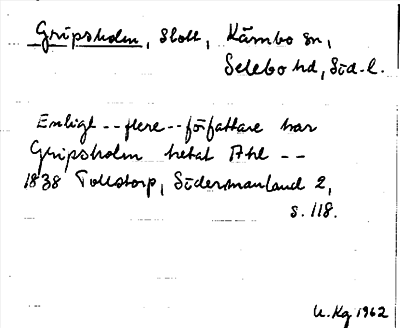 Gripsholm, Slott, Kärnbo sn,
Selebo hd, Söd-l.
Enligt -- flere -- författare har
Gripsholm hetat Ahl --
1838 Tollstorp, Södermanland 2,
s. 118.
U. Kg 1962